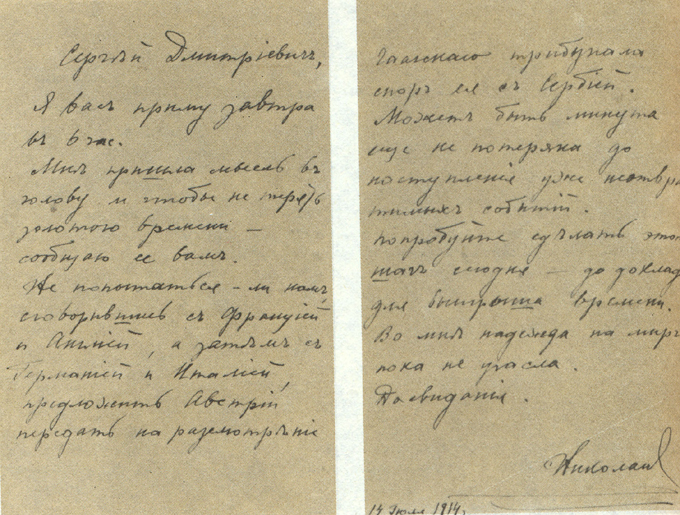 Сергѣй Дмитріевичъ,
Я васъ приму завтра
въ 6 час.
Мнѣ пришла мысль въ
голову и чтобы не терять
золотого времени —
сообщаю ее вамъ.
Не попытаться-ли намъ,
сговорившись съ Франціей
и Англіей, а затѣмъ съ
Германіей и Италіей,
предложить Австріи
передать на разсмотрѣніе
Гаагскаго трибунала
споръ ея съ Сербіей.
Можетъ быть минута
еще не потеряна до
наступленія уже неотвра
тимыхъ событій.
Попробуйте сдѣлать этотъ
шагъ сегодня — до доклада
для выигрыша времени.
Во мнѣ надежда на миръ
пока не угасла.
До свиданія.
Николай
14 Іюля 1914 г.